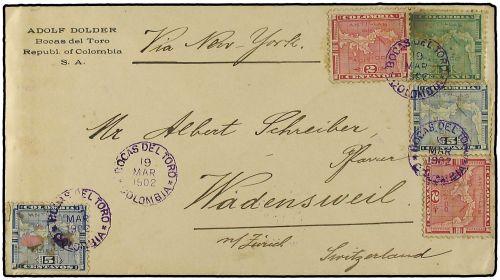 ADOLF DOLDER
Bocas del Toro
Republ. of Colombia
S. A.
Via New-York.
COLOMBIA
2 2
CENTAVOS
COLOMBIA
BOCAS DEL TORO
19
MAR
1902
COLOMBIA
Mr Albert Schreiber,
Pfarrer
Wädensweil
n/Zürich
Switzerland
BOCAS DEL TORO
19
MAR
1902
COLOMBIA
5 5
MAR
1902
2 2
BOCAS DEL TORO
MAR
1902
COLOMBIA
5 5
CENTAVOS